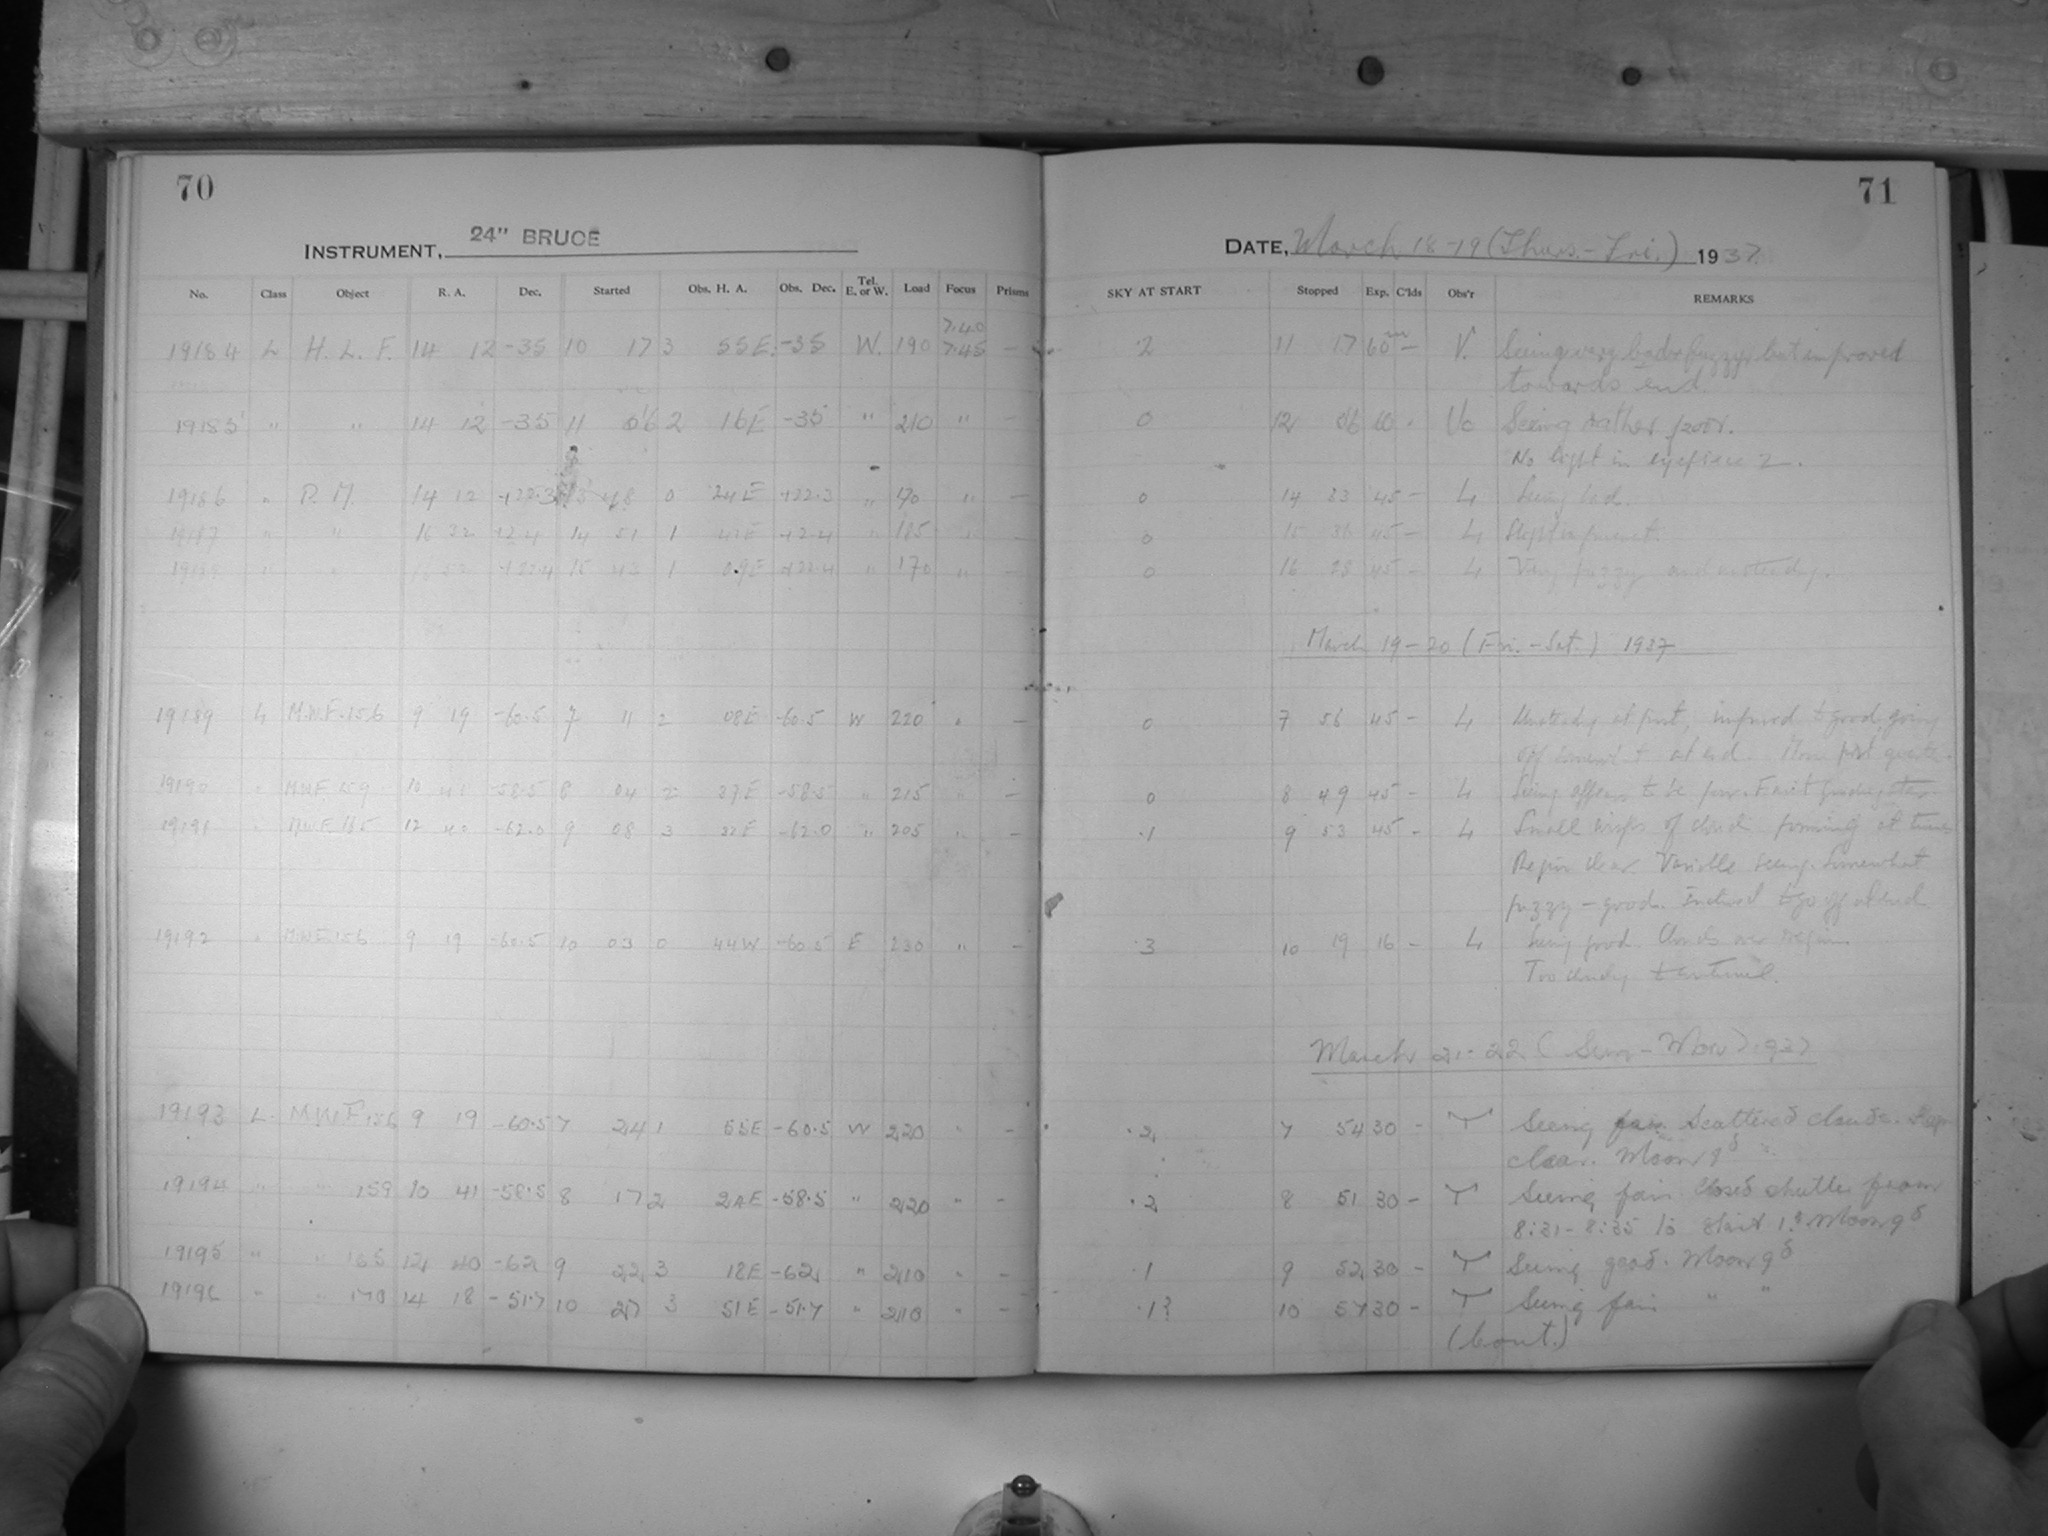 70
INSTRUMENT, 24" BRUCE
No. Class Object R. A. Dec. Started Obs. H. A. Obs. Dec. Tel. E. or W. Load Focus Prisms
19184 L H. L. F. 14 12 -35 10 17 3 55E -35 W. 190 7.40 7.45 -
19185 " " 14 12 -35 11 06 2 16E -35 " 210 " -
19186 " P. M. 14 12 +22.3 13 48 0 24E +22.3 " 170 " -
19187 " " 16 32 14 51 1 " 185 " -
" 16 32 +22.4 15 43 1 09E +22.4 " 170 " -
19189 L M.W.F. 156 9 19 -60.5 7 11 2 08E -60.5 W 220 " -
19190 " M.W.F. 159 10 41 -58.5 8 04 2 37E -58.5 " 215 " -
19191 " M.W.F. 165 12 40 -62.0 9 08 3 32E -62.0 " 205 " -
19192 " M.W.F. 156 9 19 -60.5 10 03 0 44W -60.5 E 230 " -
19193 L. M.W.F. 156 9 19 -60.5 7 24 1 55E -60.5 W 220 " -
19194 " " 159 10 41 -58.5 8 17 2 24E -58.5 " 220 " -
19195 " " 165 12 40 -62 9 22 3 18E -62 " 210 " -
19196 " " 170 14 18 -51.7 10 27 3 51E -51.7 " 210 " -
71
DATE, March 18-19 (Thurs. - Fri.) 1937
SKY AT START Stopped Exp. C'lds Obs'r REMARKS
.2 11 17 60m - V. Seeing very bad & fuzzy, but improved
towards end.
0 12 06 60 . Vo Seeing rather poor.
No light in eyepiece 2.
0 14 33 45 - L Seeing bad.
0 15 36 45 - L Slight improvement.
0 16 28 45 - L Very fuzzy and unsteady.
March 19-20 (Fri. - Sat.) 1937
0 7 56 45 - L Unsteady at first, improved to good, going
off somewhat at end. Moon first quarter.
0 8 49 45 - L Seeing appears to be poor. Faint guiding star.
.1 9 53 45 - L Small wisps of cloud forming at times
Region clear. Variable seeing. Somewhat
fuzzy - good. Inclined to go off at end.
.3 10 19 16 - L Seeing good. Clouds over region.
Too cloudy to continue.
March 21-22 (Sun - Mon) 1937
.2 7 54 30 - T Seeing fair. Scattered clouds.
clear. Moon 9d
.2 8 51 30 - T Seeing fair. Closed shutter from
8:31-8:35 to Moon 9d
.1 9 52 30 - T Seeing good. Moon 9d
.1? 10 57 30 - T Seeing fair " "
(Cont.)